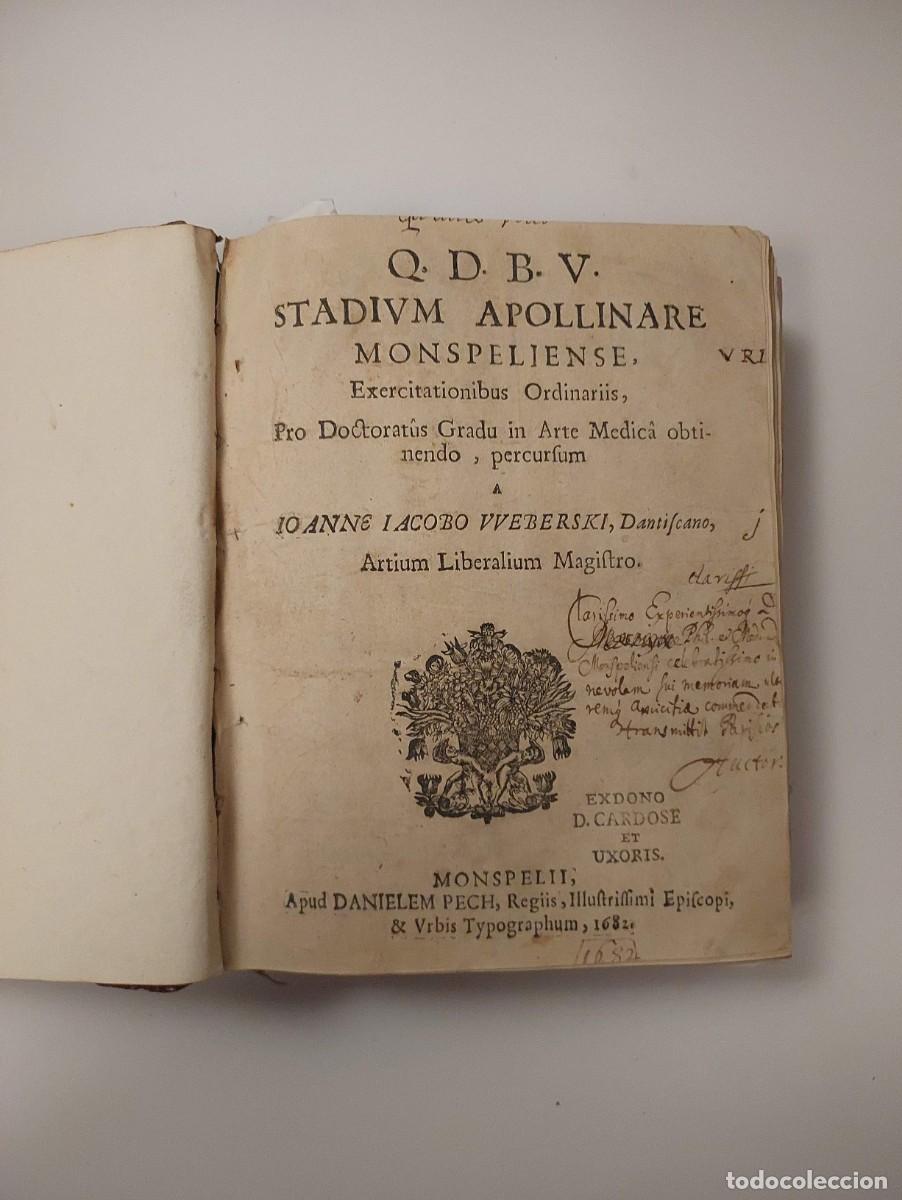 Q. D. B. V.
STADIVM APOLLINARE
MONSPELIENSE,
VRI
Exercitationibus Ordinariis,
Pro Doctoratûs Gradu in Arte Medicâ obti-
nendo, percurſum
A
IOANNE IACOBO VVEBERSKI, Dantiſcano,
j
Artium Liberalium Magiſtro.
clariſſi
Clariſſimo Experientiſſimoq
Monſpelienſi celebratiſſimo
nevolam ſui memoriam
amicitiæ commendat
tranſmittit Pariſios
Auctor.
EXDONO
D. CARDOSE
ET
UXORIS.
MONSPELII,
Apud DANIELEM PECH, Regiis, Illuſtriſſimi Epiſcopi,
& Vrbis Typographum, 1682.
1682
todocoleccion